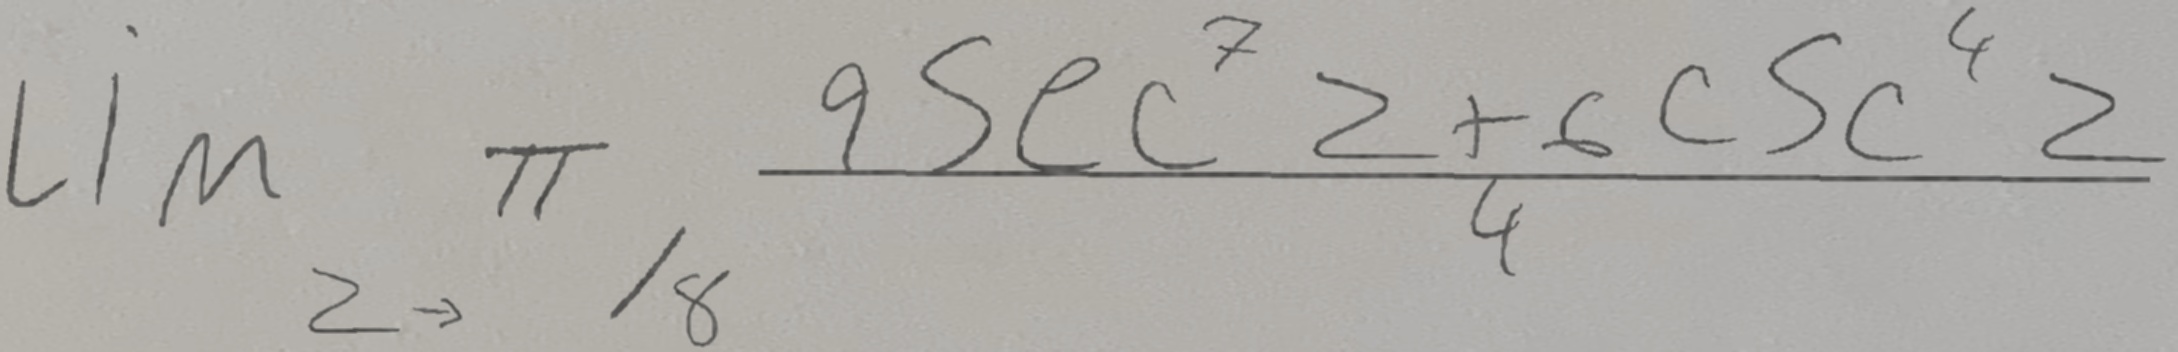 \lim_{z \to \pi/8} \frac{9 \sec^7 z + 6 \csc^4 z}{4}